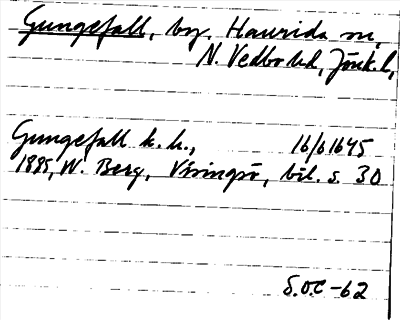 Gungefall, by, Haurida sn,
N. Vedbo hd, Jönk. l,
Gungefall k. h., 16/6 1645
1885, W. Berg, Visingsö, bil. s. 30
S.O.C -62